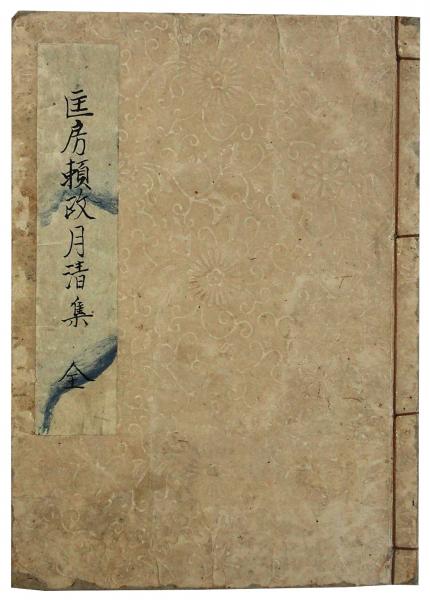 匡房頼政月清集 全